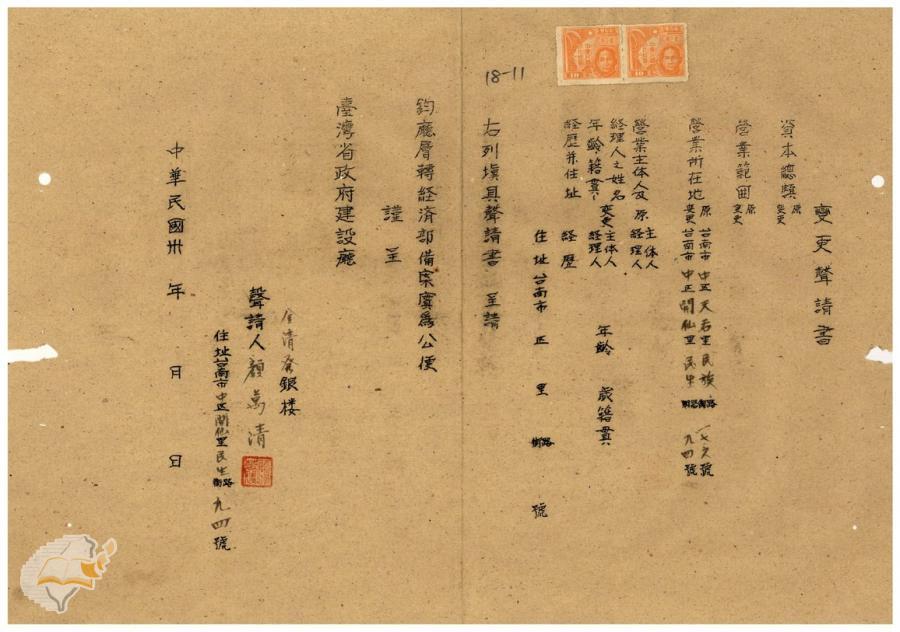 變更聲請書
資本總額 原 變更
營業範囲 原 變更
營業所在地 原 台南市 中区 天后里 民族 街路 一七六號
變更 台南市 中区 開仙里 民生 街路 九四號
營業主体人及 原 主体人 經理人
經理人之姓名 變更 主体人 經理人 年齡 歲 籍貫
年齡籍貫
經歷并住址 經歷
住址 台南市 区 里 街路 號
右列填具聲請書 呈請
18-11
鈞廳層轉経済部備案實為公便
謹呈
臺灣省政府建設廳
清發銀楼
聲請人 顏萬清
住址 台南市 中区 開仙里 民生 街路 九四號
中華民國卅 年 月 日
10
10